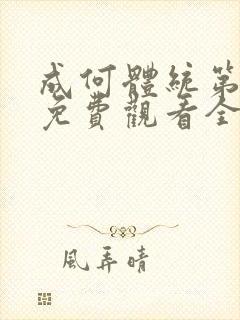 成何體統第
免費觀看全
風弄晴